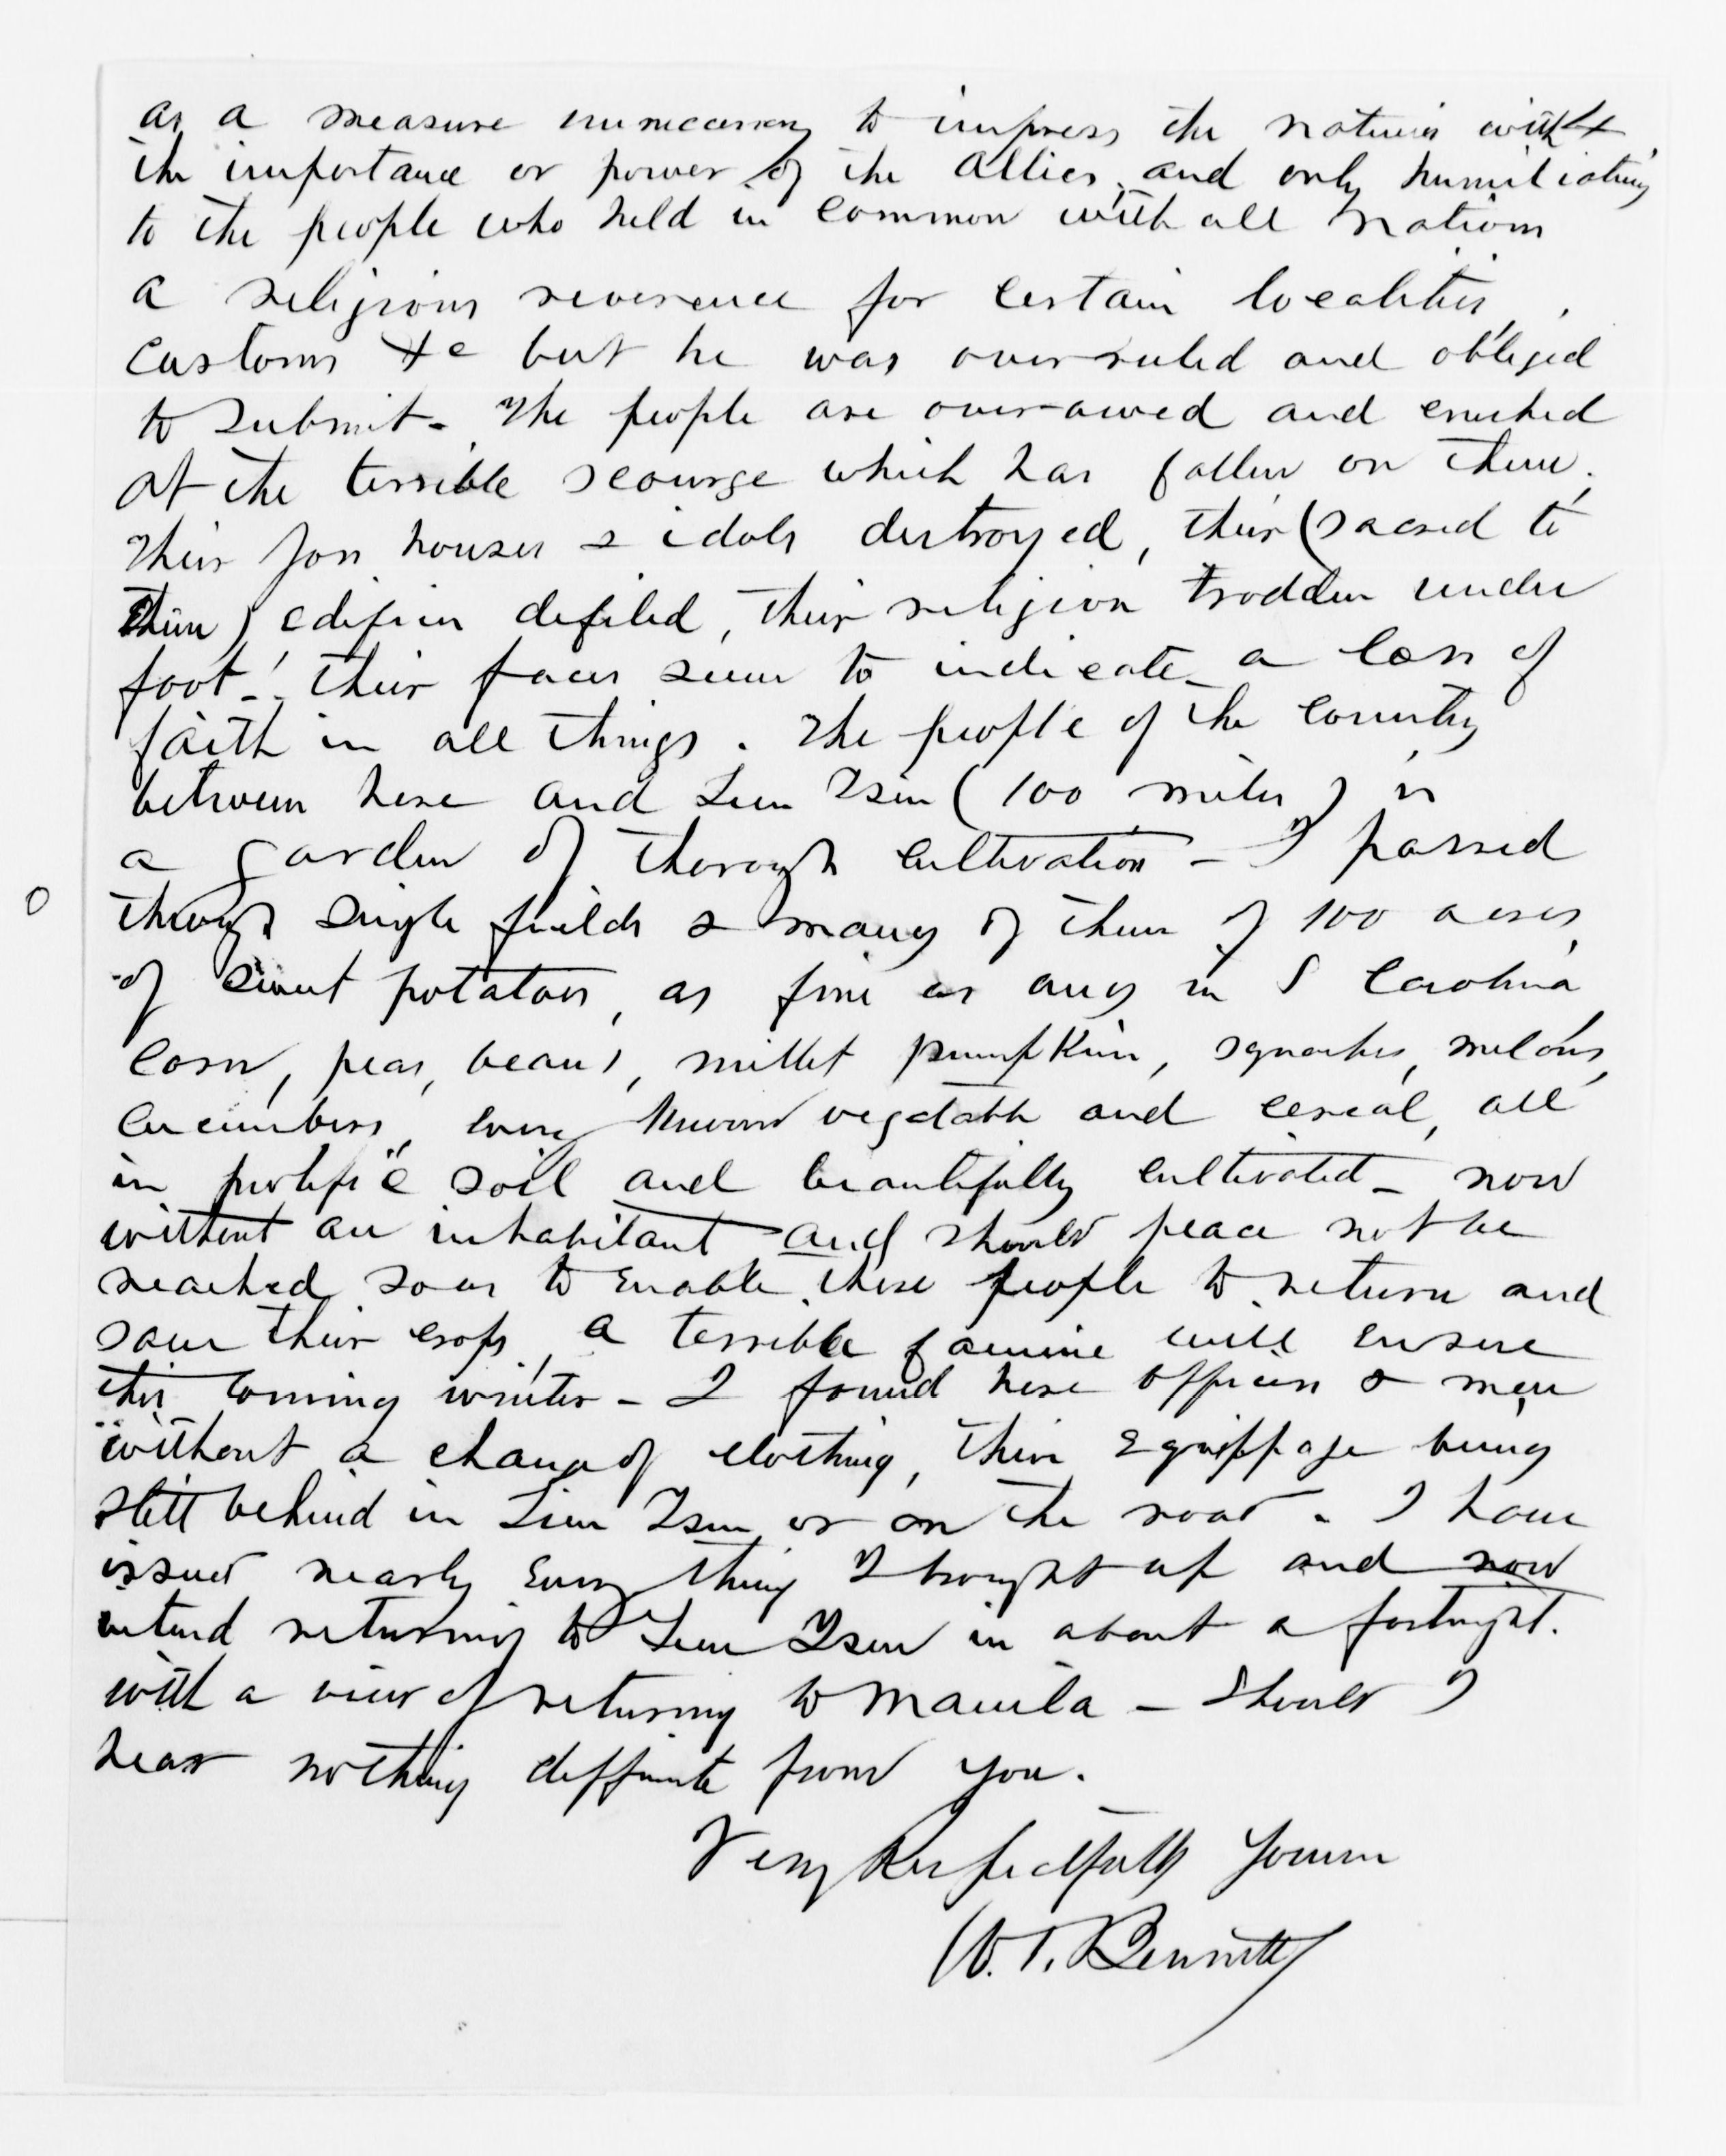 as a measure unnecessary to impress the natives with
the importance or power of the Allies, and only humiliating
to the people who held in common with all nations
a religious reverence for certain localities,
customs &c but he was overruled and obliged
to submit - The people are over-awed and crushed
at the terrible scourge which has fallen on them.
Their Joss houses & idols destroyed, their (sacred to
them) edifices defiled, their religion trodden under
foot! their faces seem to indicate a loss of
faith in all things. The people of the country
between here and Tien Tsin (100 miles) is
a garden of thorough cultivation - I passed
through single fields & many of them of 100 acres,
of sweet potatoes, as fine as any in S Carolina
Corn, peas, beans, millet pumpkin, squashes, melons,
cucumbers, every known vegetable and cereal, all
in prolific soil and beautifully cultivated - now
without an inhabitant and should peace not be
reached so as to enable these people to return and
save their crops, a terrible famine will ensue
this coming winter - I found here officers & men
without a change of clothing, their equippage being
still behind in Tien Tsin or on the road. I have
issued nearly every thing I brought up and now
intend returning to Tien Tsin in about a fortnight.
with a view of returning to Manila - Should I
hear nothing deffinite from you.
Very Respectfully Yours
W. T. Bennett